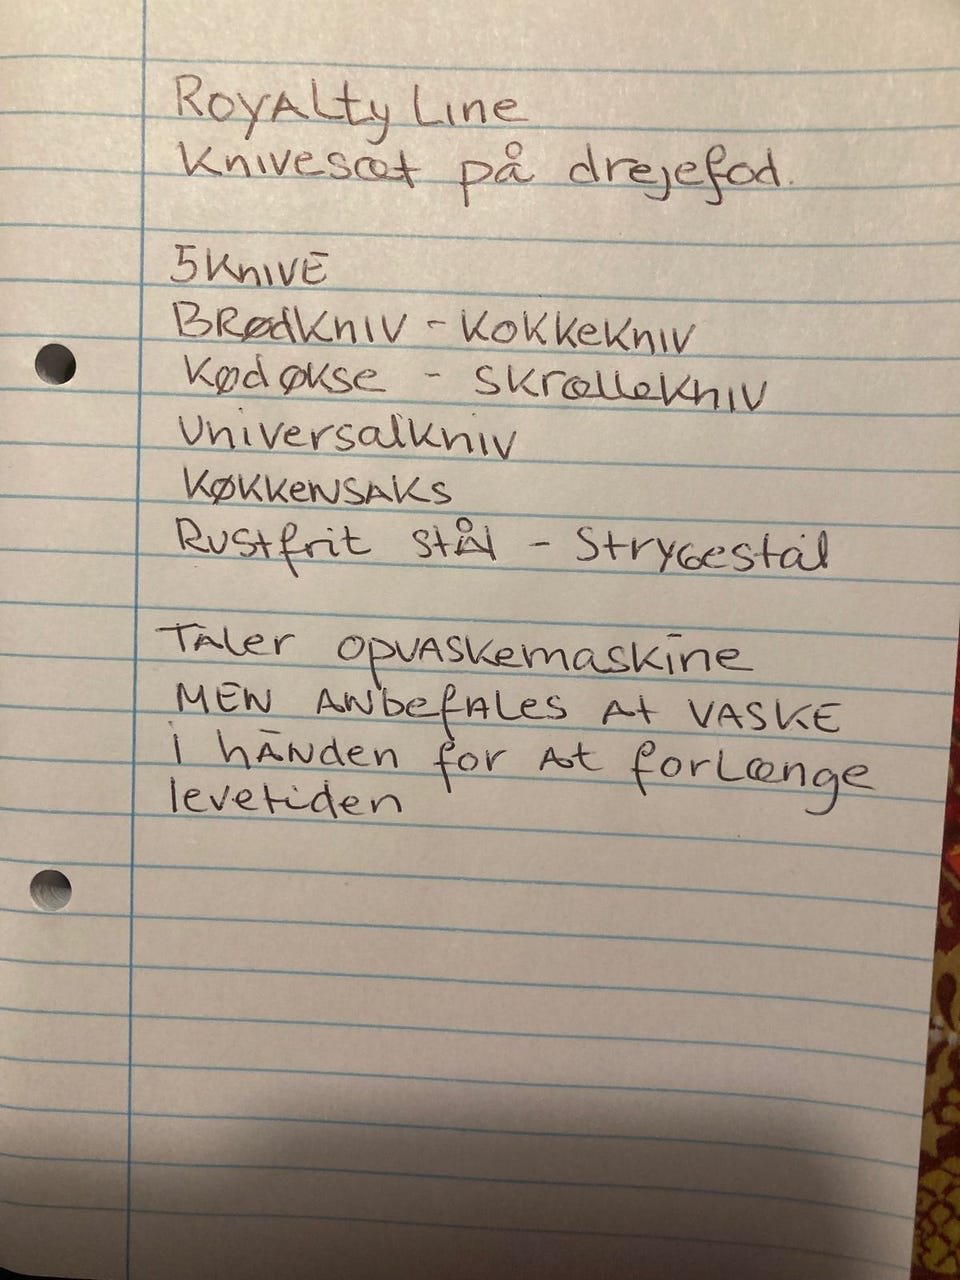 Royalty Line
Knivesæt på drejefod.
5 Knive
Brødkniv - Kokkekniv
Kødøkse - Skrællekniv
Universalkniv
Køkkensaks
Rustfrit stål - Strygestål
Tåler opvaskemaskine
MEN ANbefales At VASKE
i hånden for At forlænge
levetiden